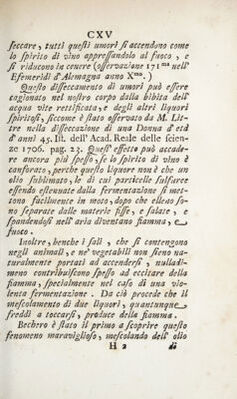 CXV
seccare, tutti questi umori si accendono come
lo spirito di vino appressandolo al fuoco, e
si riducono in cenere (osservazione 171ma nell'
Efemeridi d'Alemagna anno Xmo. )
Questo disseccamento di umori può essere
cagionato nel nostro corpo dalla bibita dell'
acqua vite rettificata, e degli altri liquori
spiritosi, siccome è stato osservato da M. Lit-
tre nella disseccazione di una Donna d'età
d'anni 45. Ist. dell' Acad. Reale delle scien-
ze 1706. pag. 23. Quest' effetto può accade-
re ancora più spesso, se lo spirito di vino è
canforato, perche questo liquore non è che un
olio sublimato, le di cui particelle sulfuree
essendo estenuate dalla fermentazione si met-
tono facilmente in moto, dopo che elleno so-
no separate dalle materie fisse, e salate, e
spandendosi nell' aria diventano fiamma, e
fuoco.
Inoltre, benche i sali, che si contengono
negli animali, e ne' vegetabili non sieno na-
turalmente portati ad accendersi, nulladi-
meno contribuiscono spesso ad eccitare della
fiamma, specialmente nel caso di una vio-
lenta fermentazione. Da ciò procede che il
mescolamento di due liquori, quantunque
freddi a toccarsi, produce della fiamma.
Bechero è stato il primo a scoprire questo
fenomeno maraviglioso, mescolando dell' olio
H 2 di